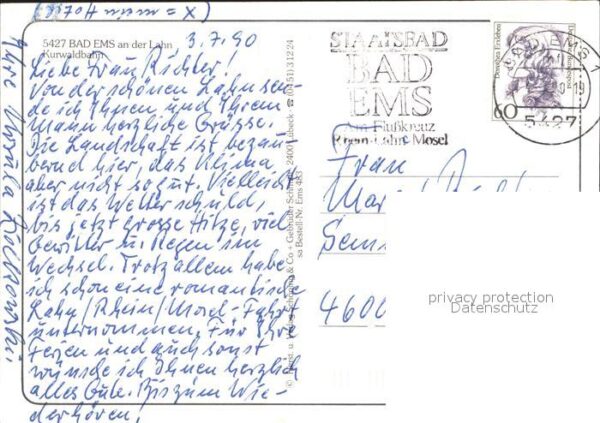 (X = mein Hotel)
5427 BAD EMS an der Lahn
Kurwaldbahn
3.7.90
Liebe Frau Richter!
Von der schönen Lahn sen-
de ich Ihnen und Ihrem
Mann herzliche Grüsse.
Die Landschaft ist bezau-
bernd hier, das Klima
aber nicht so gut. Vielleicht
ist das Wetter schuld,
bis jetzt grosse Hitze, viel
Gewitter u. Regen im
Wechsel. Trotz allem habe
ich schon eine romantische
Lahn/Rhein/Mosel-Fahrt
unternommen. Für Ihre
Ferien und auch sonst
wünsche ich Ihnen herzlich
alles Gute. Bis zum Wie-
derhören!
Ihre Ursula
Schöning & Co + Gebrüder Schmidt, 2400 Lübeck ☎ (0451) 3 12 24
Bestell-Nr. Ems 483
STAATSBAD
BAD
EMS
Am Flußkreuz
Rhein-Lahn-Mosel
Dorothea Erxleben
60
Deutsche Bundespost
BAD EMS 1
5427
Frau
4600
privacy protection
Datenschutz